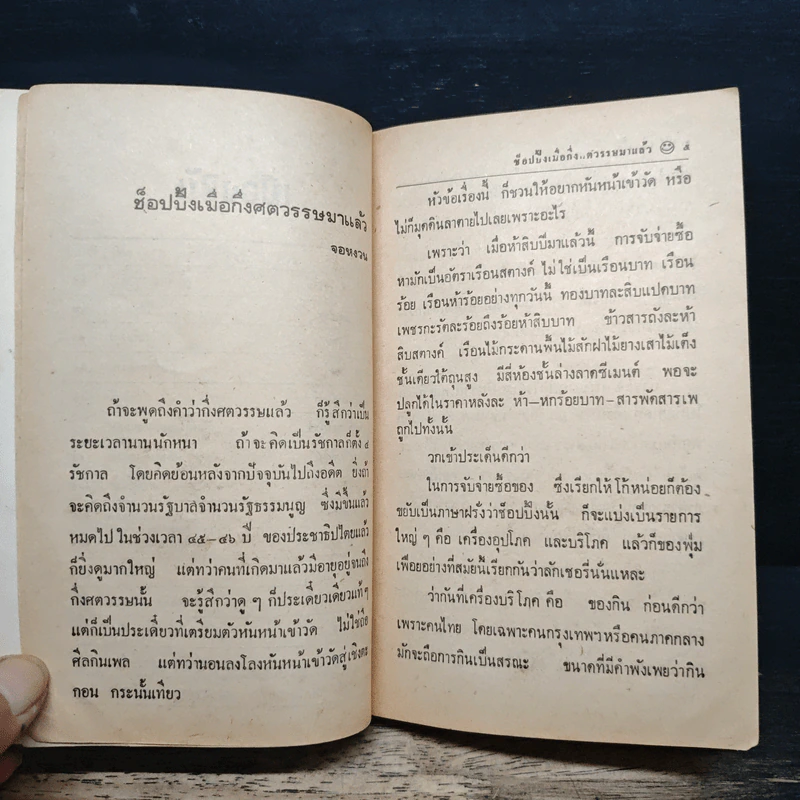 ช็อปปิ้งเมื่อกึ่งศตวรรษมาแล้ว
จอหงวน
ถ้าจะพูดถึงคำว่ากึ่งศตวรรษแล้ว ก็รู้สึกว่าเป็น
ระยะเวลานานนักหนา ถ้าจะคิดเป็นรัชกาลก็ตั้ง ๔
รัชกาล โดยคิดย้อนหลังจากปัจจุบันไปถึงอดีต ยิ่งถ้า
จะคิดถึงจำนวนรัฐบาลจำนวนรัฐธรรมนูญ ซึ่งมีขึ้นแล้ว
หมดไป ในช่วงเวลา ๔๕–๔๖ ปี ของประชาธิปไตยแล้ว
ก็ยิ่งดูมากใหญ่ แต่ทว่าคนที่เกิดมาแล้วมีอายุอยู่จนถึง
กึ่งศตวรรษนั้น จะรู้สึกว่าดู ๆ ก็ประเดี๋ยวเดียวแท้ๆ
แต่ก็เป็นประเดี๋ยวที่เตรียมตัวหันหน้าเข้าวัด ไม่ใช่ถือ
ศีลกินเพล แต่ทว่านอนลงโลงหันหน้าเข้าวัดสู่เชิงตะ
กอน กระนั้นเทียว
ช็อปปิ้งเมื่อกึ่ง..ตวรรษมาแล้ว ๕
หัวข้อเรื่องนี้ ก็ชวนให้อยากหันหน้าเข้าวัด หรือ
ไม่ก็มุดดินลาตายไปเลยเพราะอะไร
เพราะว่า เมื่อห้าสิบปีมาแล้วนี้ การจับจ่ายซื้อ
หามักเป็นอัตราเรือนสตางค์ ไม่ใช่เป็นเรือนบาท เรือน
ร้อย เรือนห้าร้อยอย่างทุกวันนี้ ทองบาทละสิบแปดบาท
เพชรกะรัตละร้อยถึงร้อยห้าสิบบาท ข้าวสารถังละห้า
สิบสตางค์ เรือนไม้กระดานพื้นไม้สักฝาไม้ยางเสาไม้เต็ง
ชั้นเดียวใต้ถุนสูง มีสี่ห้องชั้นล่างลาดซีเมนต์ พอจะ
ปลูกได้ในราคาหลังละ ห้า–หกร้อยบาท–สารพัดสารเพ
ถูกไปทั้งนั้น
วกเข้าประเด็นดีกว่า
ในการจับจ่ายซื้อของ ซึ่งเรียกให้โก้หน่อยก็ต้อง
ขยับเป็นภาษาฝรั่งว่าช็อปปิ้งนั้น ก็จะแบ่งเป็นรายการ
ใหญ่ ๆ คือ เครื่องอุปโภค และบริโภค แล้วก็ของฟุ่ม
เฟือยอย่างที่สมัยนี้เรียกกันว่าลักเชอรี่นั่นแหละ
ว่ากันที่เครื่องบริโภค คือ ของกิน ก่อนดีกว่า
เพราะคนไทย โดยเฉพาะคนกรุงเทพฯหรือคนภาคกลาง
มักจะถือการกินเป็นสรณะ ขนาดที่มีคำพังเพยว่ากิน